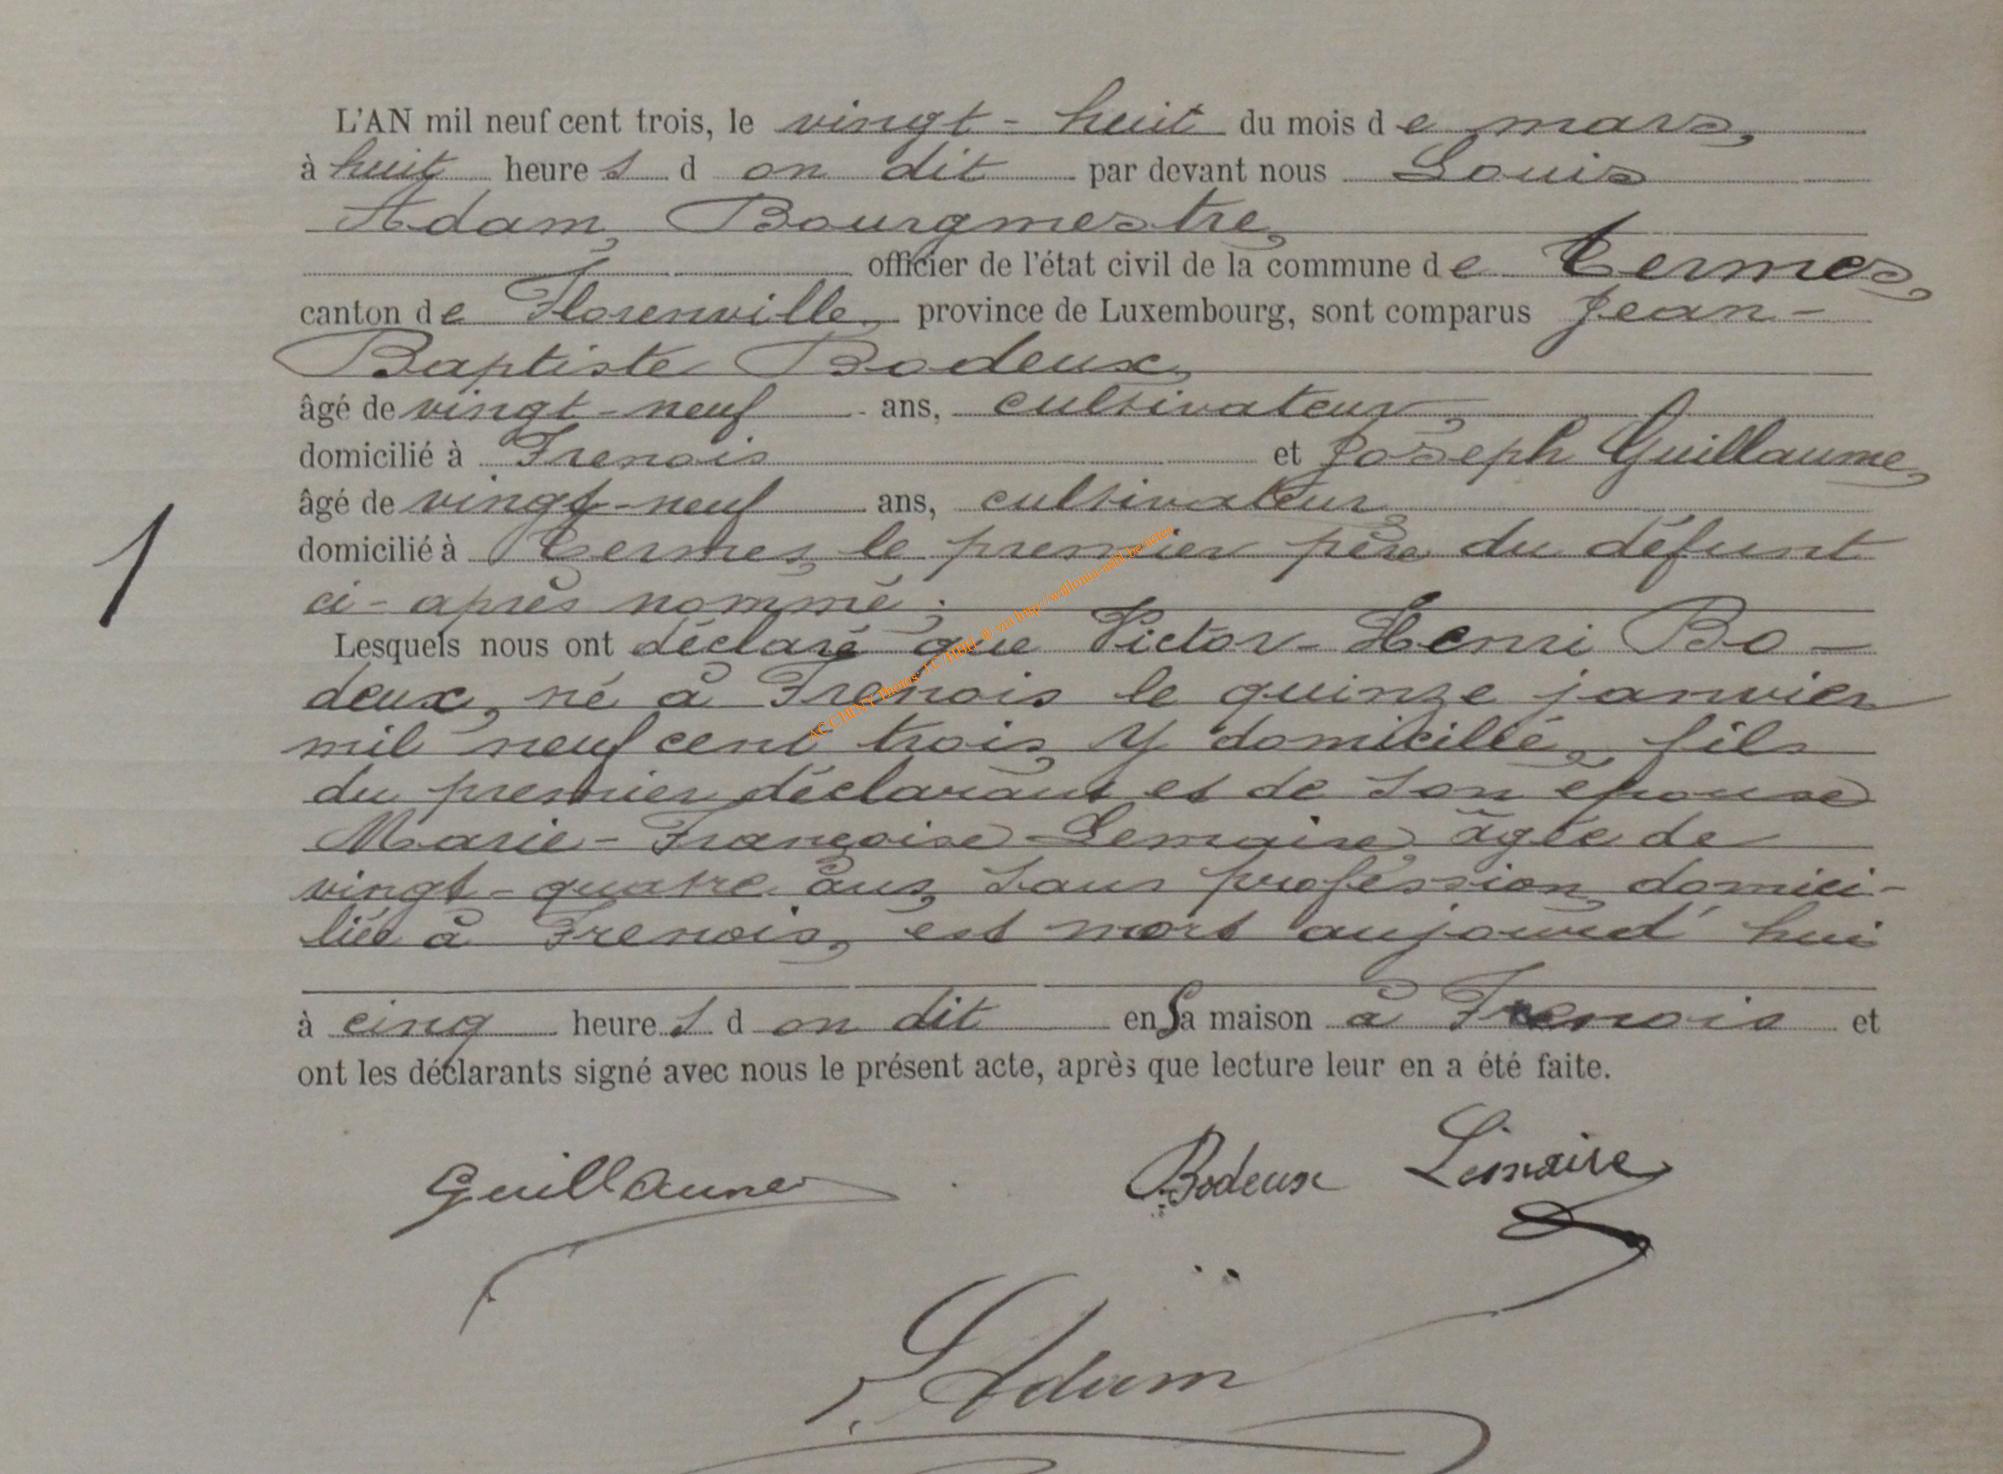 L'AN mil neuf cent trois, le vingt-huit du mois de mars,
à huit heures d on dit par devant nous Louis
Adam, Bourgmestre,
officier de l'état civil de la commune de Termes,
canton de Florenville, province de Luxembourg, sont comparus Jean-
Baptiste Bodeux,
âgé de vingt-neuf ans, cultivateur,
domicilié à Frenois et Joseph Guillaume,
âgé de vingt-neuf ans, cultivateur,
domicilié à Termes, le premier père du défunt
ci-après nommé;
1
Lesquels nous ont déclaré que Victor-Henri Bo-
deux, né à Frenois le quinze janvier
mil neuf cent trois, y domicilié, fils
du premier déclarant et de son épouse
Marie-Françoise Lemaire, âgée de
vingt-quatre ans, sans profession, domici-
liée à Frenois, est mort aujourd'hui
à cinq heures d on dit en sa maison à Frenois et
ont les déclarants signé avec nous le présent acte, après que lecture leur en a été faite.
Guillaume Bodeux Lemaire
L Adam